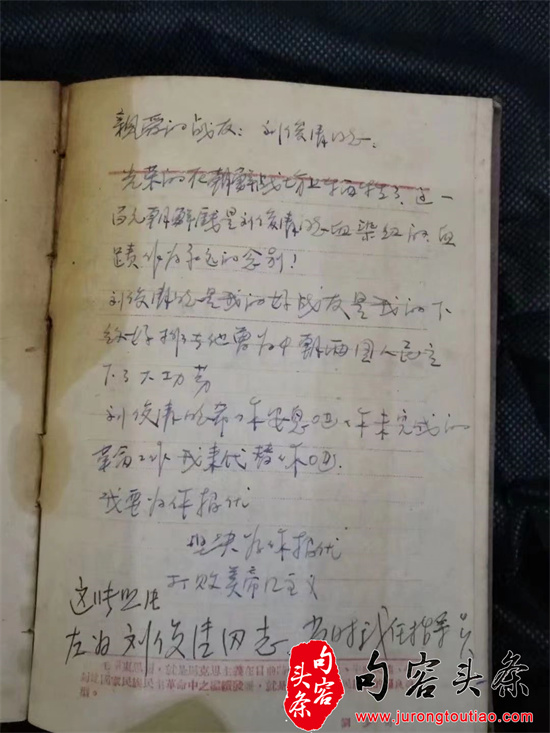 親爱的战友：刘俊清同志.
光荣的在朝鮮战场上牺牲了 这一
百元朝鮮錢是刘俊清同志血染红的 血
蹟作为永远的念别！
刘俊清同志是我的好战友是我的下
级好排长他曾为中朝两国人民立
下了大功劳
刘俊清同志 你安息吧 你未完成的
革命工作我来代替你吧.
我要为你报仇
坚决为你报仇
打败美帝主义
这张照片
左为刘俊清同志 当时我任指导员
句容头条
句容头条
www.jurongtoutiao.com